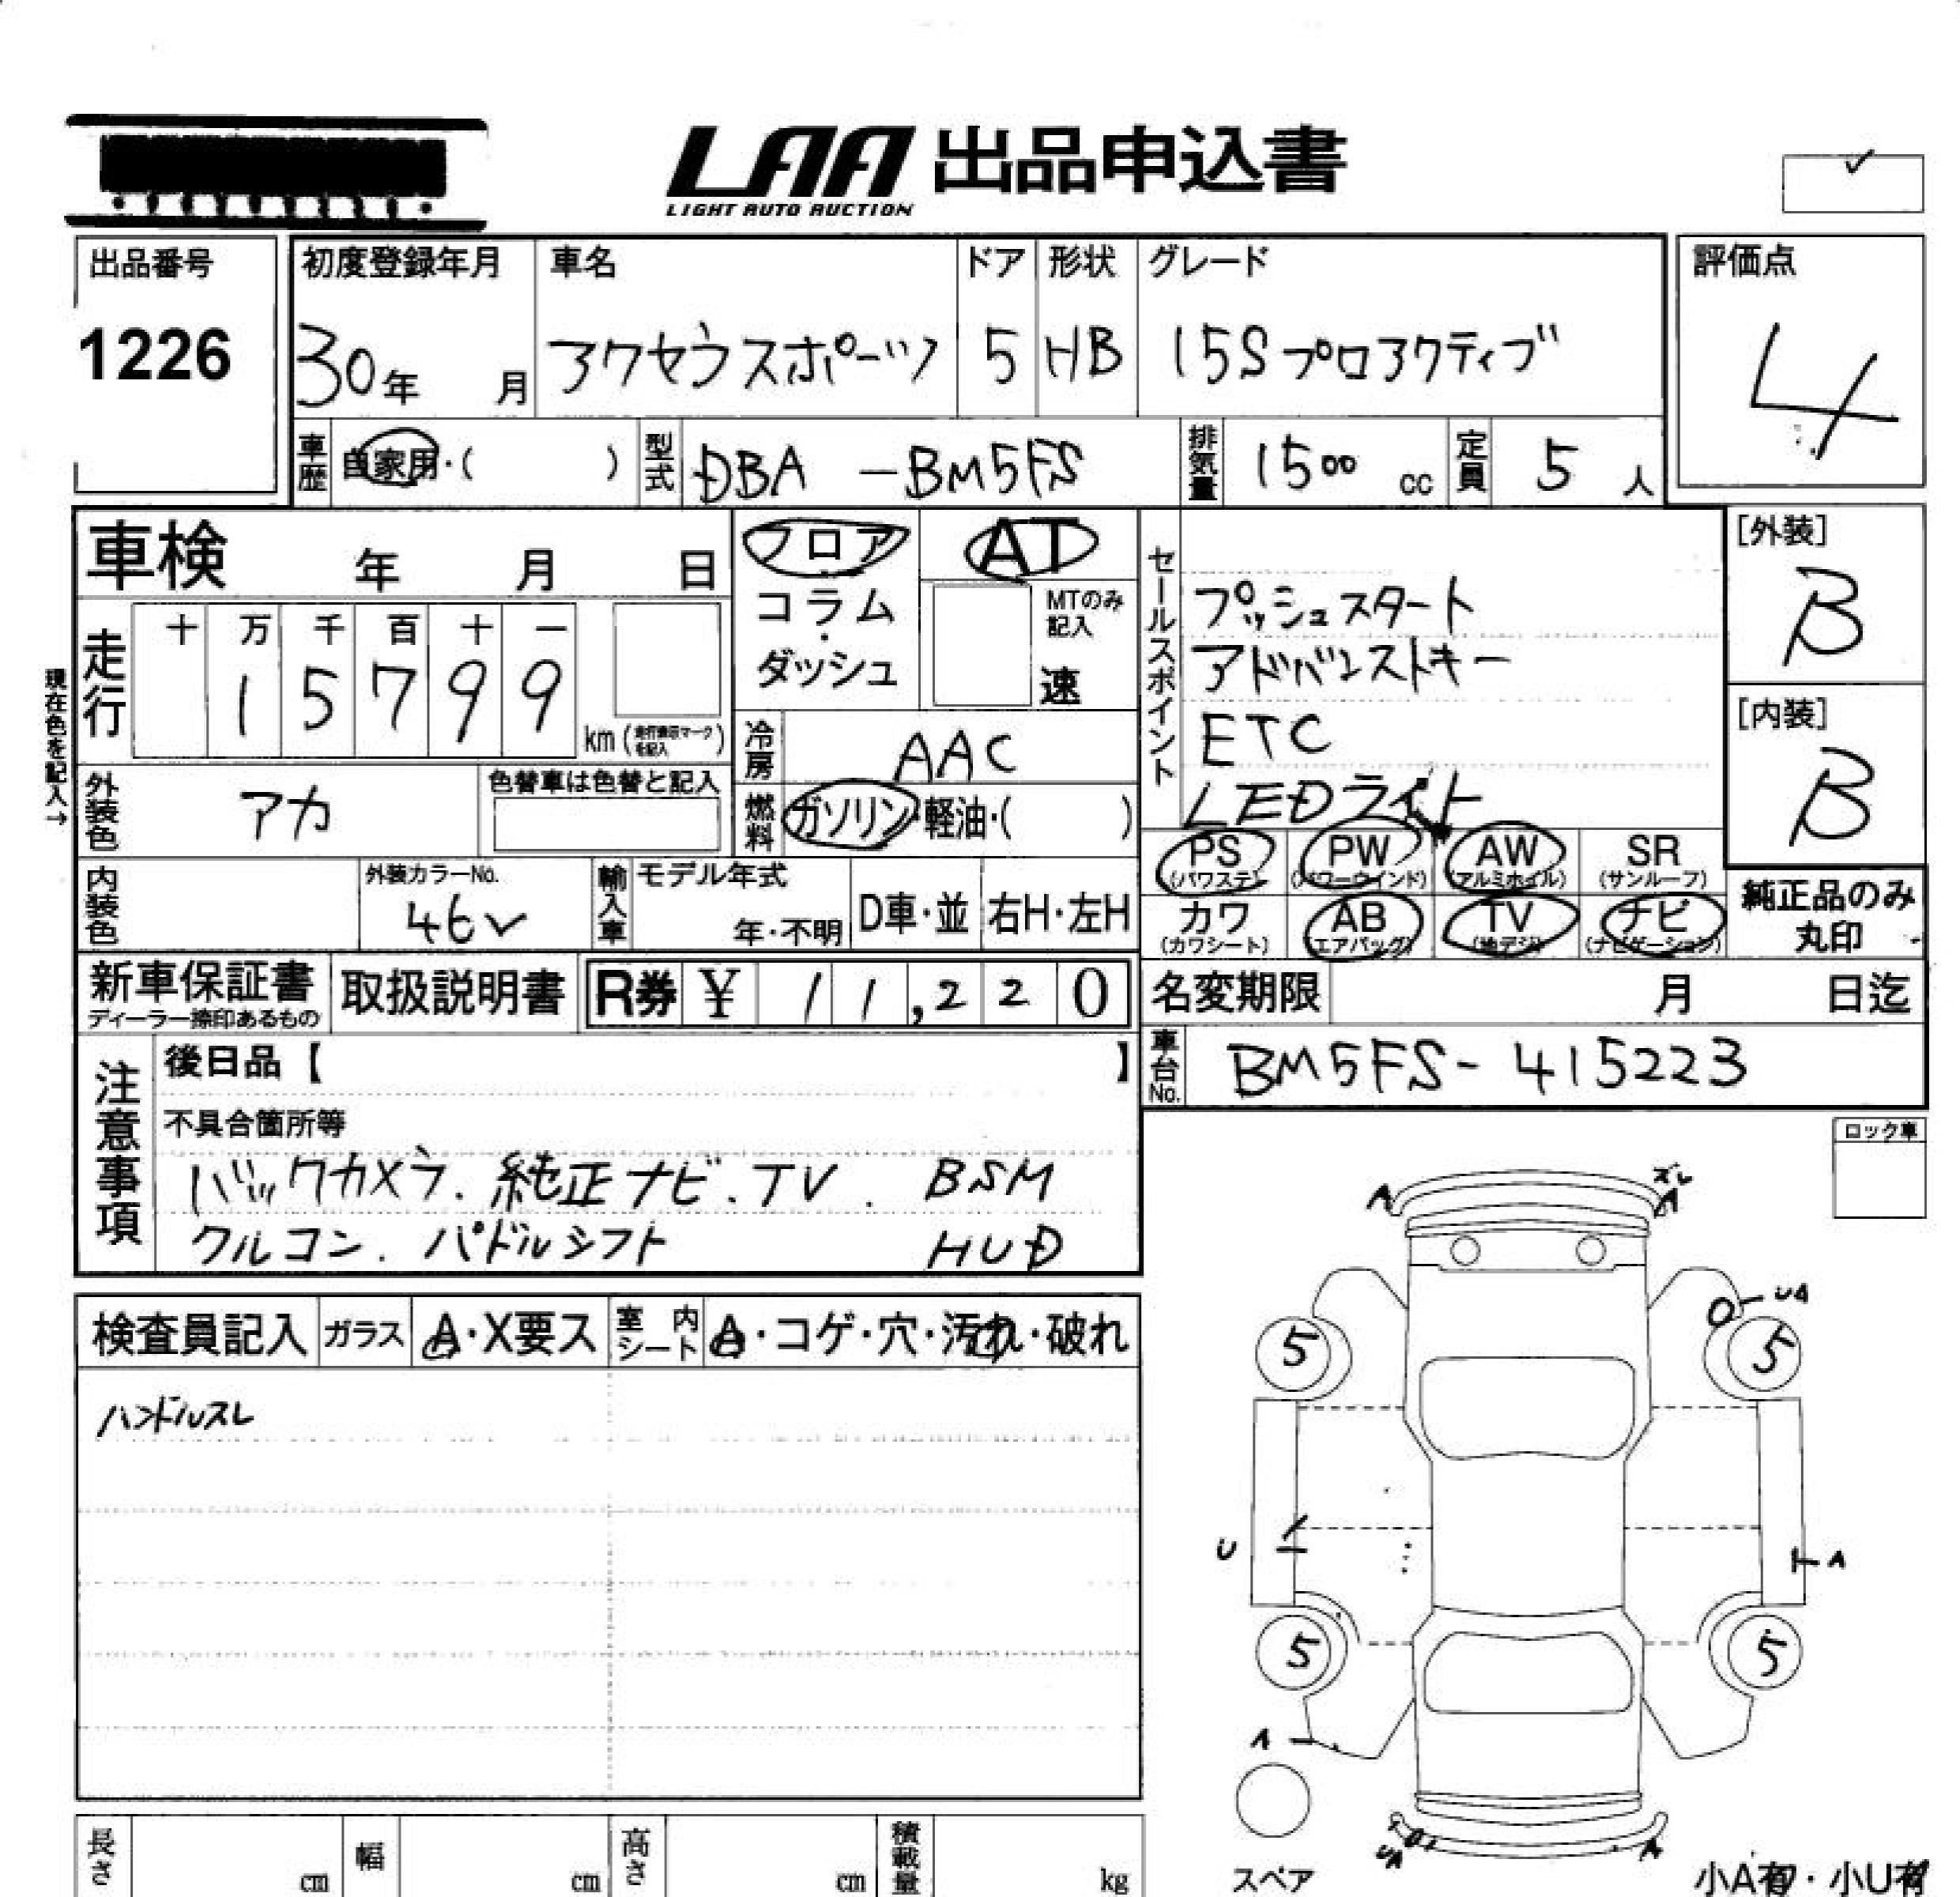 LAA 出品申込書
LIGHT AUTO AUCTION
出品番号
1226
初度登録年月
30年 月
車名
アクセラスポーツ
ドア
5
形状
HB
グレード
15Sプロアクティブ
評価点
4
車歴 自家用・( )
型式 DBA -BM5FS
排気量 1500 cc
定員 5 人
車検 年 月 日
フロア
コラム
・
ダッシュ
AT
MTのみ
記入
速
セールスポイント
プッシュスタート
アドバンストキー
ETC
LEDライト
[外装]
B
[内装]
B
現在色を記入→
走行
十 万 千 百 十 一
1 5 7 9 9
km (走行表示マークを記入)
冷房 AAC
外装色 アカ
色替車は色替と記入
燃料 ガソリン・軽油・( )
PS (パワステ)
PW (パワーウインド)
AW (アルミホイル)
SR (サンルーフ)
カワ (カワシート)
AB (エアバッグ)
TV (地デジ)
ナビ (ナビゲーション)
純正品のみ
丸印
内装色
外装カラーNo.
46V
輸入車
モデル年式
年・不明
D車・並
右H・左H
新車保証書
ディーラー捺印あるもの
取扱説明書
R券 ¥ 11,220
名変期限 月 日迄
車台No. BM5FS-415223
注意事項
後日品【 】
不具合箇所等
バックカメラ. 純正ナビ. TV. BSM
クルコン. パドルシフト HUD
ロック車
検査員記入
ガラス A・X要ス
室内シート A・コゲ・穴・汚れ・破れ
ハンドルスレ
A
ズレ
A
UA
5
5
U
A
5
5
A
スペア
UA
A
小A有・小U有
長さ cm
幅 cm
高さ cm
積載量 kg